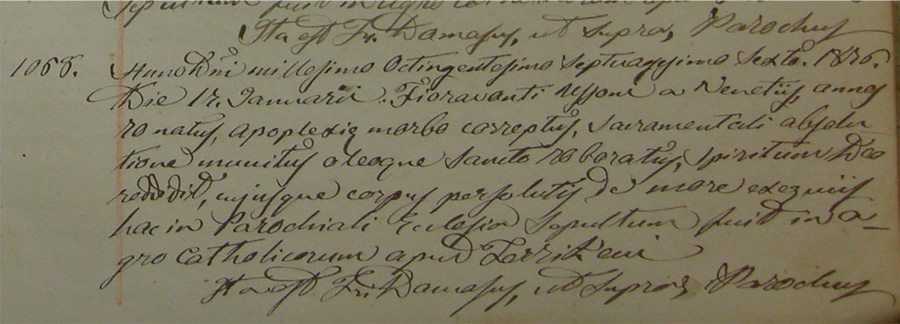 Sepultum fuit in agro
Ita est Fr. Damasus, ut supra, Parochus
1068. Anno Dñi millesimo Octingentesimo Septuagesimo Sexto. 1876.
Die 17. Januarii. Fioravanti a Venetiis, annos
70 natus, apoplexiæ morbo correptus, Sacramentali absolu
tione munitus oleoque Sancto roboratus, spiritum Deo
reddidit, cujusque corpus persolutis de more exequiis
hac in Parochiali Ecclesia Sepultum fuit in a_
gro Catholicorum apud
Ita est Fr. Damasus, ut supra, Parochus